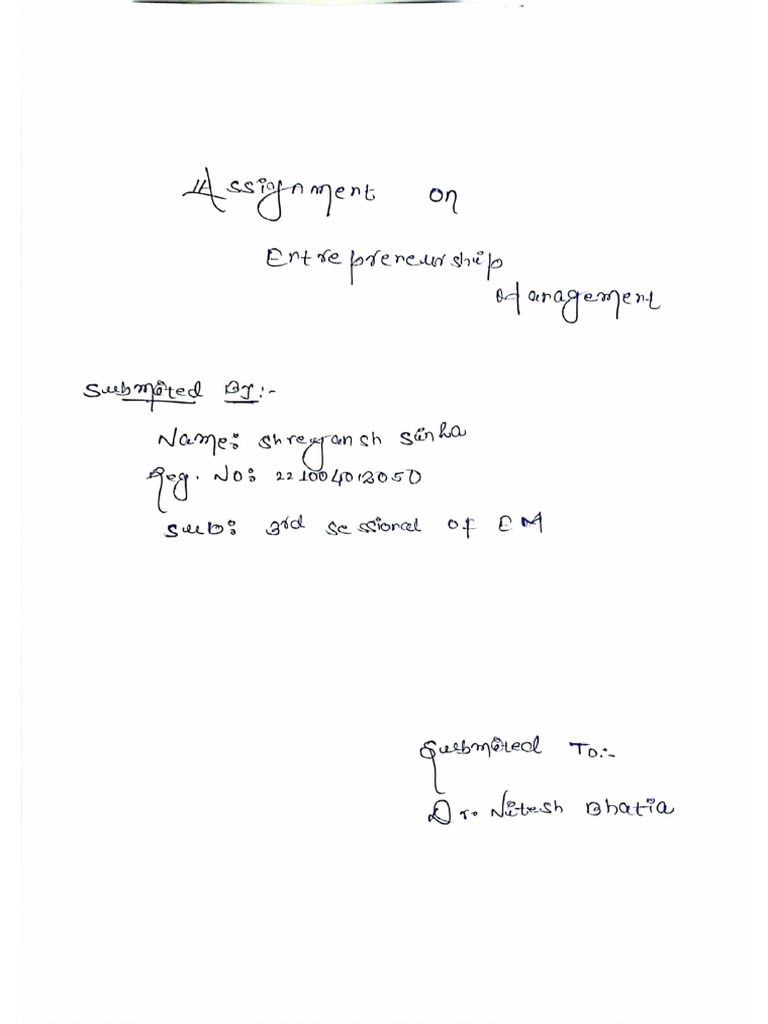 Assignment on
Entrepreneurship
Management
Submited By:-
Name: Shreyansh Sinha
Reg. No: 221004012050
Sub: 3rd sessional of EM
Submited To:-
Dr. Nitesh Bhatia